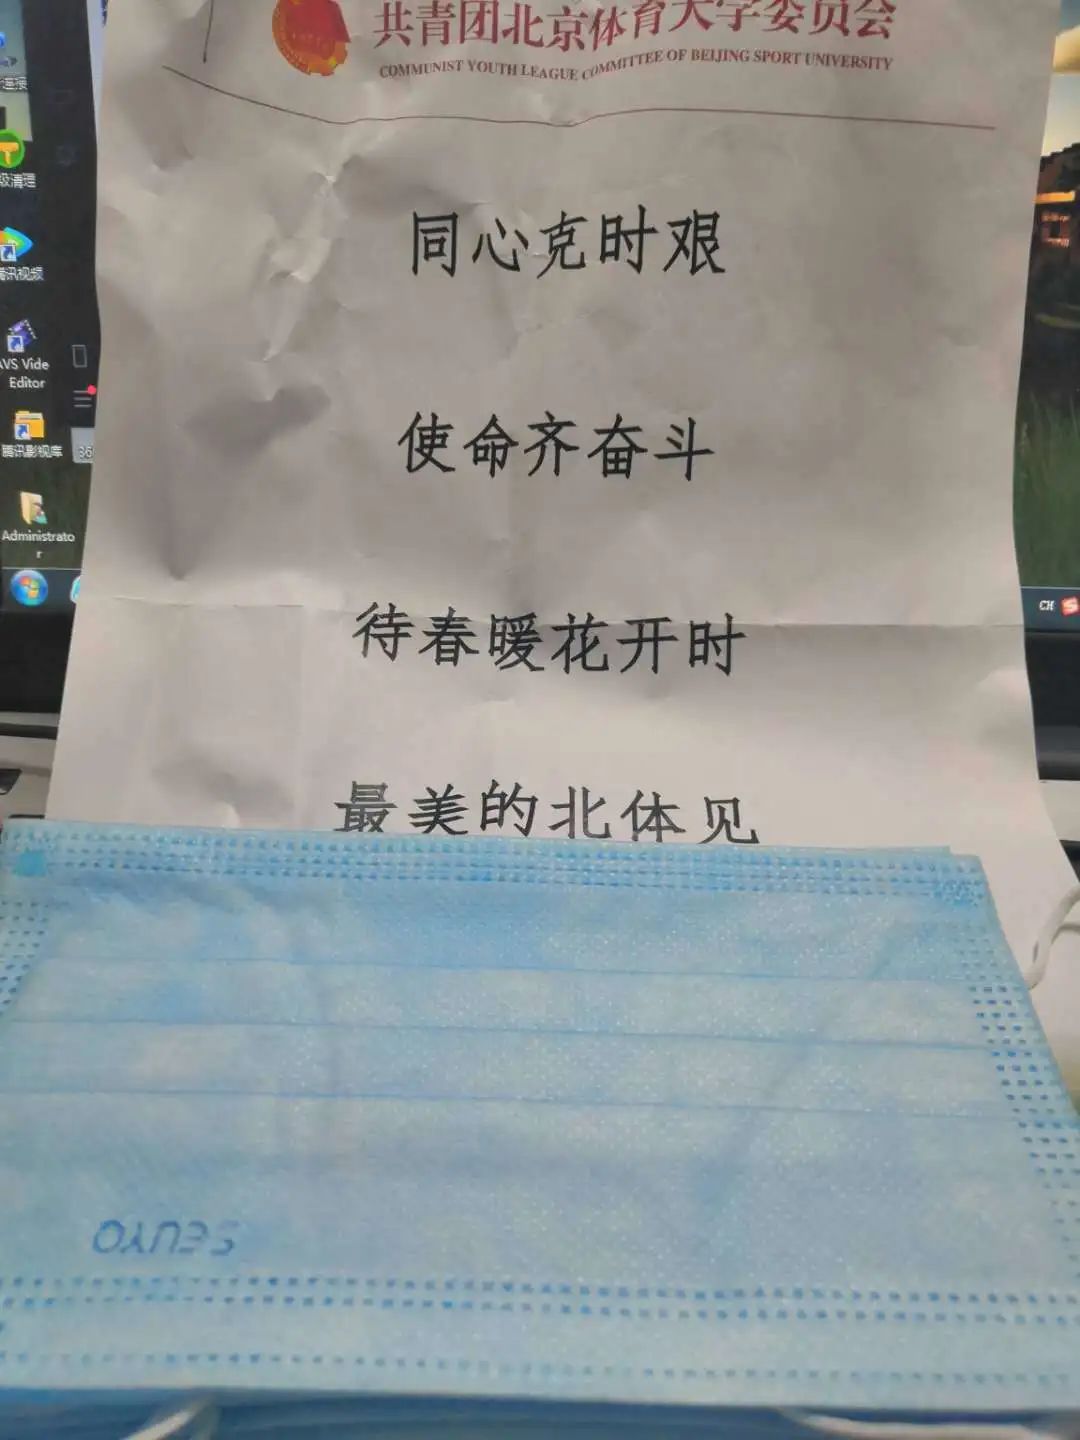 共青团北京体育大学委员会
COMMUNIST YOUTH LEAGUE COMMITTEE OF BEIJING SPORT UNIVERSITY
同心克时艰
使命齐奋斗
待春暖花开时
最美的北体见
SEUYO
腾讯视频
AVS Vide
Editor
腾讯影视库
36
Administrato
r
CH